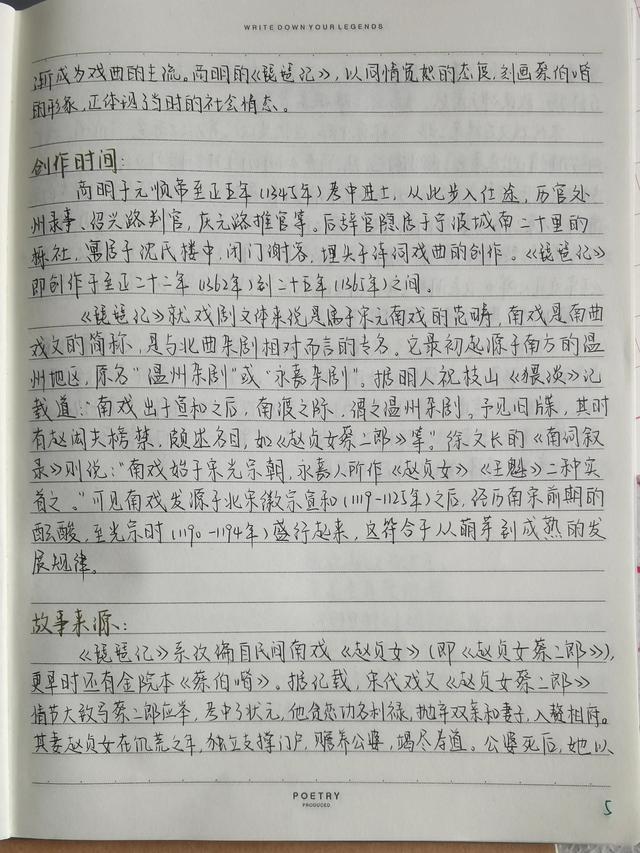 WRITE DOWN YOUR LEGENDS
渐成为戏曲的主流。高明的《琵琶记》，以同情宽恕的态度，刻画蔡伯喈
的形象，正体现了当时的社会情态。
创作时间：
高明于元顺帝至正五年（1345年）考中进士，从此步入仕途，历官处
州录事、绍兴路判官，庆元路推官等。后辞官隐居于宁波城南二十里的
栎社，寓居于沈氏楼中，闭门谢客，埋头于诗词戏曲的创作。《琵琶记》
即创作于至正二十二年（1362年）到二十五年（1365年）之间。
《琵琶记》就戏剧文体来说是属于宋元南戏的范畴，南戏是南曲
戏文的简称，是与北曲杂剧相对而言的专名。它最初起源于南方的温
州地区，原名“温州杂剧”或“永嘉杂剧”。据明人祝枝山《猥谈》记
载道：“南戏出于宣和之后，南渡之际，谓之温州杂剧。予见旧牒，其时
有赵闳夫榜禁，颇述名目，如《赵贞女蔡二郎》等。”徐文长的《南词叙
录》则说：“南戏始于宋光宗朝，永嘉人所作《赵贞女》《王魁》二种实
首之。”可见南戏发源于北宋徽宗宣和（1119-1125年）之后，经历南宋前期的
酝酿，至光宗时（1190-1194年）盛行起来，这符合于从萌芽到成熟的发
展规律。
故事来源：
《琵琶记》系改编自民间南戏《赵贞女》（即《赵贞女蔡二郎》），
更早时还有金院本《蔡伯喈》。据记载，宋代戏文《赵贞女蔡二郎》
情节大致写蔡二郎应举，考中了状元，他贪恋功名利禄，抛弃双亲和妻子，入赘相府。
其妻赵贞女在饥荒之年，独立支撑门户，赡养公婆，竭尽孝道。公婆死后，她以
POETRY
PRODUCED
5